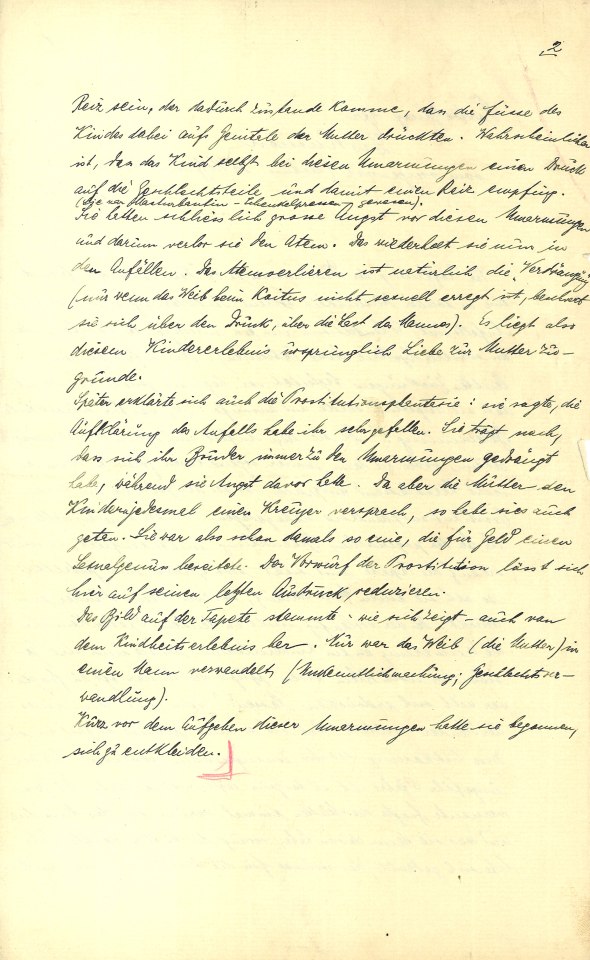 2
Reiz sein, der dadurch zustande komme, dass die Füsse des
Kindes dabei aufs Genitale der Mutter drückten. Wahrscheinlicher
ist, dass das Kind selbst bei diesen Umarmungen einen Druck
auf die Geschlechtsteile und damit einen Reiz empfing.
(Sie sei Masturbantin - gewesen).
Sie hatten schliesslich grosse Angst vor diesen Umarmungen
und darum verlor sie den Atem. Das wiederholt sie nun in
den Anfällen. Das Atemverlieren ist natürlich die Verdrängung
(nur wenn das Weib beim Koitus nicht sexuell erregt ist, beschwert
sie sich über den Druck, über die Last des Mannes). Es liegt also
diesem Kindererlebnis ursprünglich Liebe zur Mutter zu-
grunde.
Später erklärte sich auch die Prostitutionsphantasie: sie sagte, die
Aufklärung des Anfalls habe ihr sehr gefallen. Sie trägt nach,
dass sich ihr Bruder immer zu den Umarmungen gedrängt
habe, während sie Angst davor hatte. Da aber die Mutter den
Kindern jedesmal einen Kreuzer versprach, so habe sie es auch
getan. Sie war also schon damals so eine, die für Geld einen
bereitete. Der Vorwurf der Prostitution lässt sich
hier auf seinen letzten Ausdruck reduzieren.
Das Bild auf der Tapete stammte - wie sich zeigt - auch von
dem Kindheitserlebnis her. Nur war das Weib (die Mutter) in
einen Mann verwandelt (Undeutlichmachung; Geschlechtsver-
wandlung).
Kurz vor dem Aufgeben dieser Umarmungen hatte sie begonnen,
sich zu entkleiden.